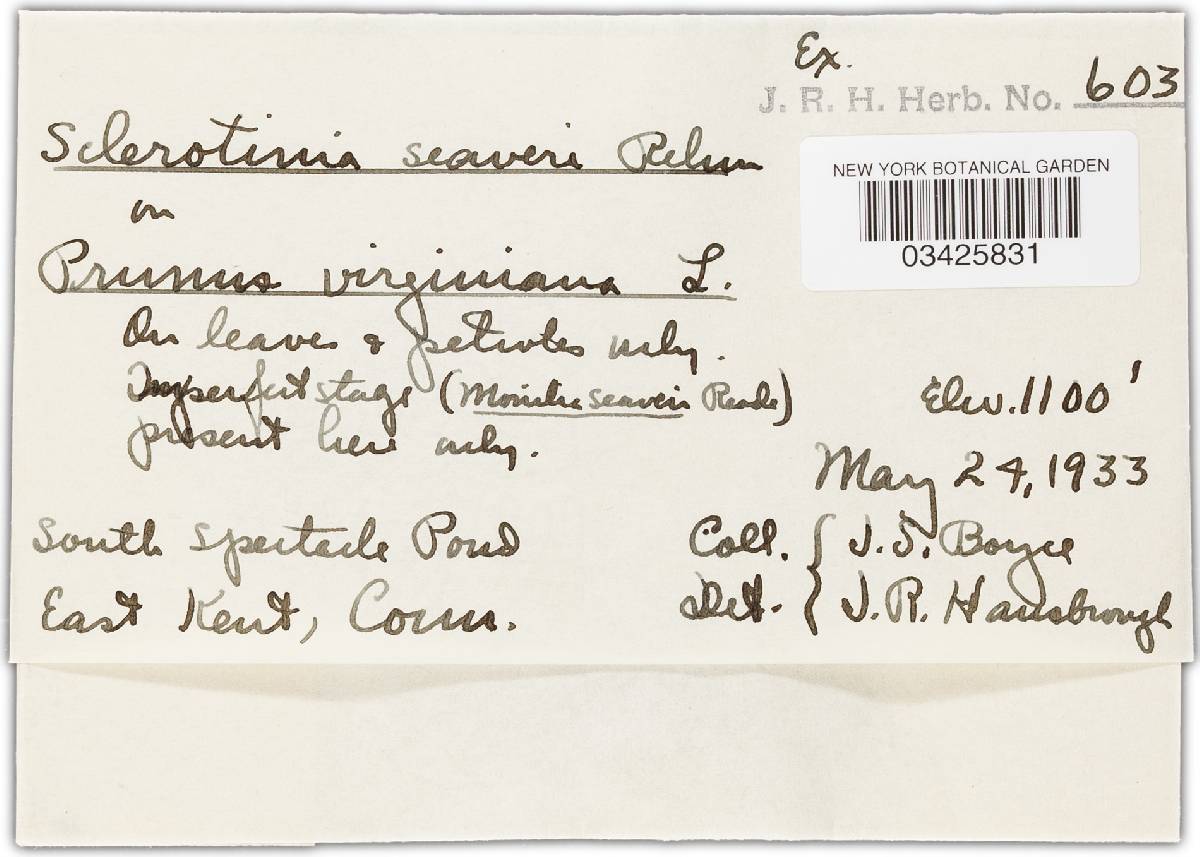 Ex.
J. R. H. Herb. No. 603
Sclerotinia seaveri Rehm
on
Prunus virginiana L.
NEW YORK BOTANICAL GARDEN
03425831
On leaves & petioles only.
Imperfect stage (Monilia seaveri Reade)
present here only.
Elev. 1100'
May 24, 1933
South Spectacle Pond
East Kent, Conn.
Coll. { J. S. Boyce
Det. { J. R. Hansbrough